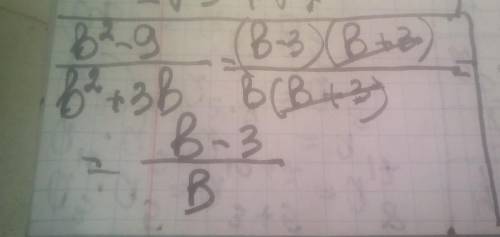 b² - 9 / b² + 3b = (b - 3)(b + 3) / b(b + 3) =
= b - 3 / b